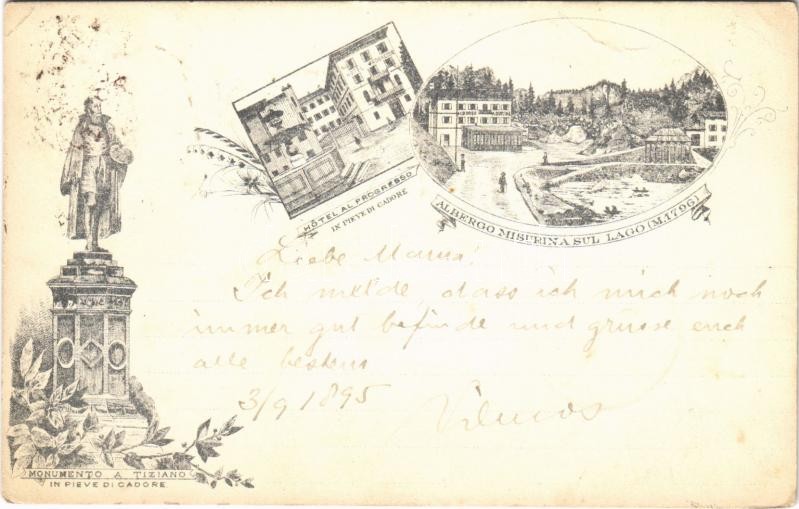 HÔTEL AL PROGRESSO
IN PIEVE DI CADORE
ALBERGO MISURINA SUL LAGO (M. 1796)
Liebe Mama!
Ich melde, dass ich mich noch
immer gut befinde und grüsse euch
alle bestens
3/9 1895
Vilmos
MONUMENTO A TIZIANO
IN PIEVE DI CADORE